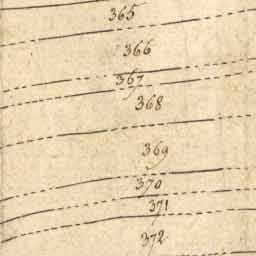 365
366
367
368
369
370
371
372